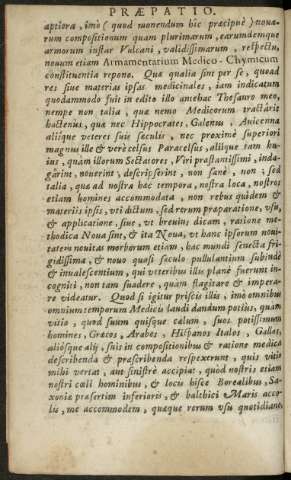 PRÆPATIO.
aptiora, imò ( quod monendum hic præcipuè ) noua-
rum compositionum quam plurimarum, earundemque
armorum instar Vulcani, validissimarum, respectu,
nouum etiam Armamentarium Medico-Chymicum
constituentia repono. Quæ qualia sint per se, quoad
res siue materias ipsas medicinales, iam indicatum
quodammodo fuit in edito illo antehac Thesauro meo,
nempe non talia, quæ nemo Medicorum tractârit
hactenus, quæ nec Hippocrates, Galenus, Auicenna
aliíque veteres sui seculis, nec proximè superiori
magnus ille & verè celsus Paracelsus, alíque tam hu-
ius, quàm illorum Sectatores, Viri præstantissimi, inda-
gârint, nouerint, descripserint, non sanè, non; sed
talia, quæ ad nostra hæc tempora, nostra loca, nostros
etiam homines accommodata, non rebus quidem &
materiis ipsis, vti dictum, sed rerum præparatione, vsu,
& applicatione, siue, vt breuius dicam, ratione me-
thodica Noua sint, & ita Noua, vt hanc ipsorum noui-
tatem nouitas morborum etiam, hac mundi senecta fri-
gidissima, & nouo quasi seculo pullulantium subinde
& inualescentium, qui vteribus illis planè fuerunt in-
cogniti, non tam suadere, quàm flagitare & impera-
re videatur. Quod si igitur priscis illis, imò omnibus
omnium temporum Medicis laudi dandum potius, quàm
vitio, quod suum quisque cælum, suos potissimum
homines, Græcos, Arabes, Hispanos Italos, Gallos,
aliósque alij, suis in compositionibus & ratione medica
describenda & præscribenda respexerunt, quis vitio
mihi vertat, aut sinistrè accipiat, quòd nostris etiam
nostri cœli hominibus, & locis hisce Borealibus, Sa-
xonia præsertim inferioris, & balthici Maris acco-
lis, me accommodem, quæque rerum vsu quotidiano